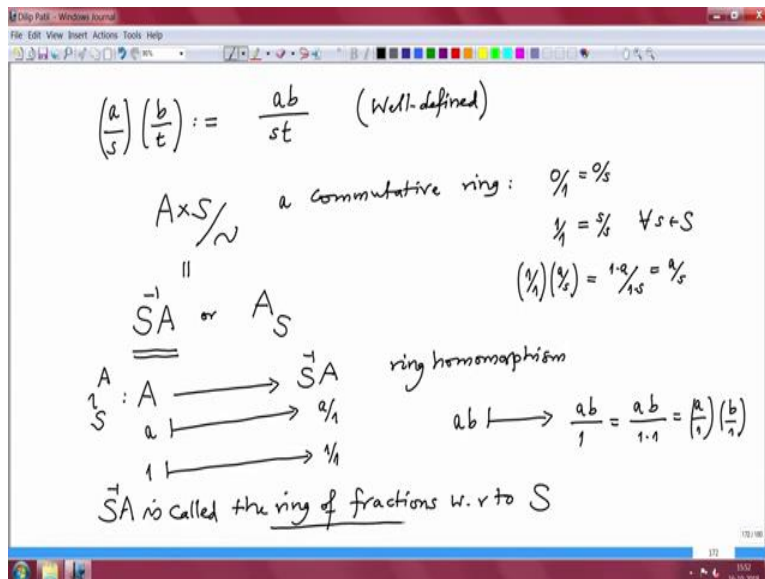 Dilip Patil - Windows Journal
File Edit View Insert Actions Tools Help
(a/s) (b/t) := ab/st (Well-defined)
A×S/~ a commutative ring: 0/1 = 0/s
1/1 = s/s ∀ s ∈ S
(1/1)(a/s) = 1·a/1·s = a/s
||
S⁻¹A or A_S
ι_S^A : A ⟶ S⁻¹A ring homomorphism
a ⟼ a/1 ab ⟼ ab/1 = ab/1·1 = (a/1)(b/1)
1 ⟼ 1/1
S⁻¹A is called the ring of fractions w.r to S
172